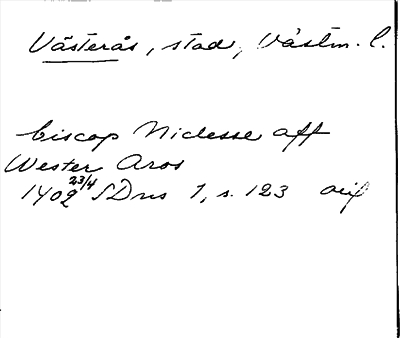 Västerås, stad, Västm. l.
biscop Niclesse aff
Wester Aros
1402 23/4 SDns 1, s. 123 avif